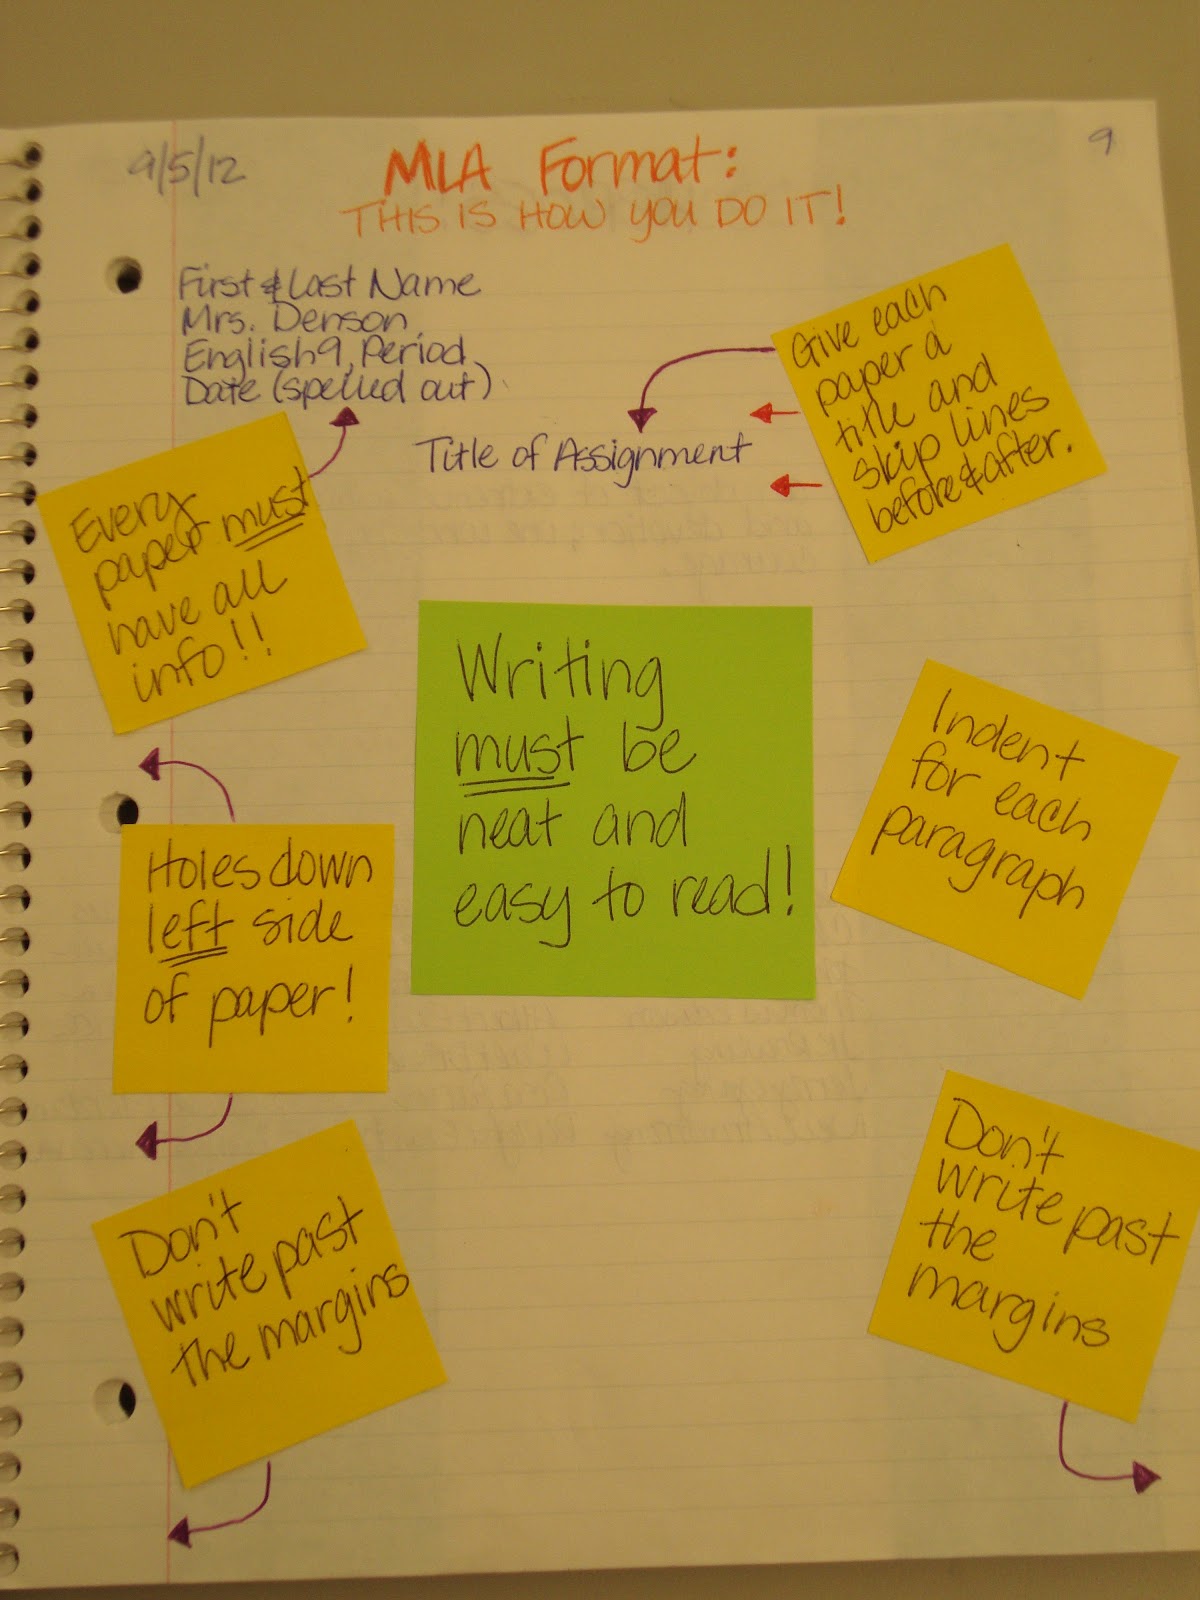 9/5/12
MLA Format:
9
THIS IS HOW YOU DO IT!
First & Last Name
Mrs. Denson
English 9, Period
Date (spelled out)
Title of Assignment
Give each
paper a
title and
skip lines
before & after.
Every
paper must
have all
info!!
Writing
must be
neat and
easy to read!
Indent
for each
paragraph
Holes down
left side
of paper!
Don't
write past
the margins
Don't
write past
the
margins